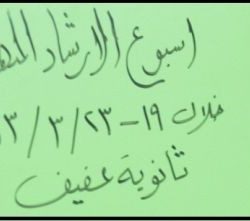 اسبوع الارشاد المه
خلال ١٩-٢٣/٣/٣
ثانوية عفيف